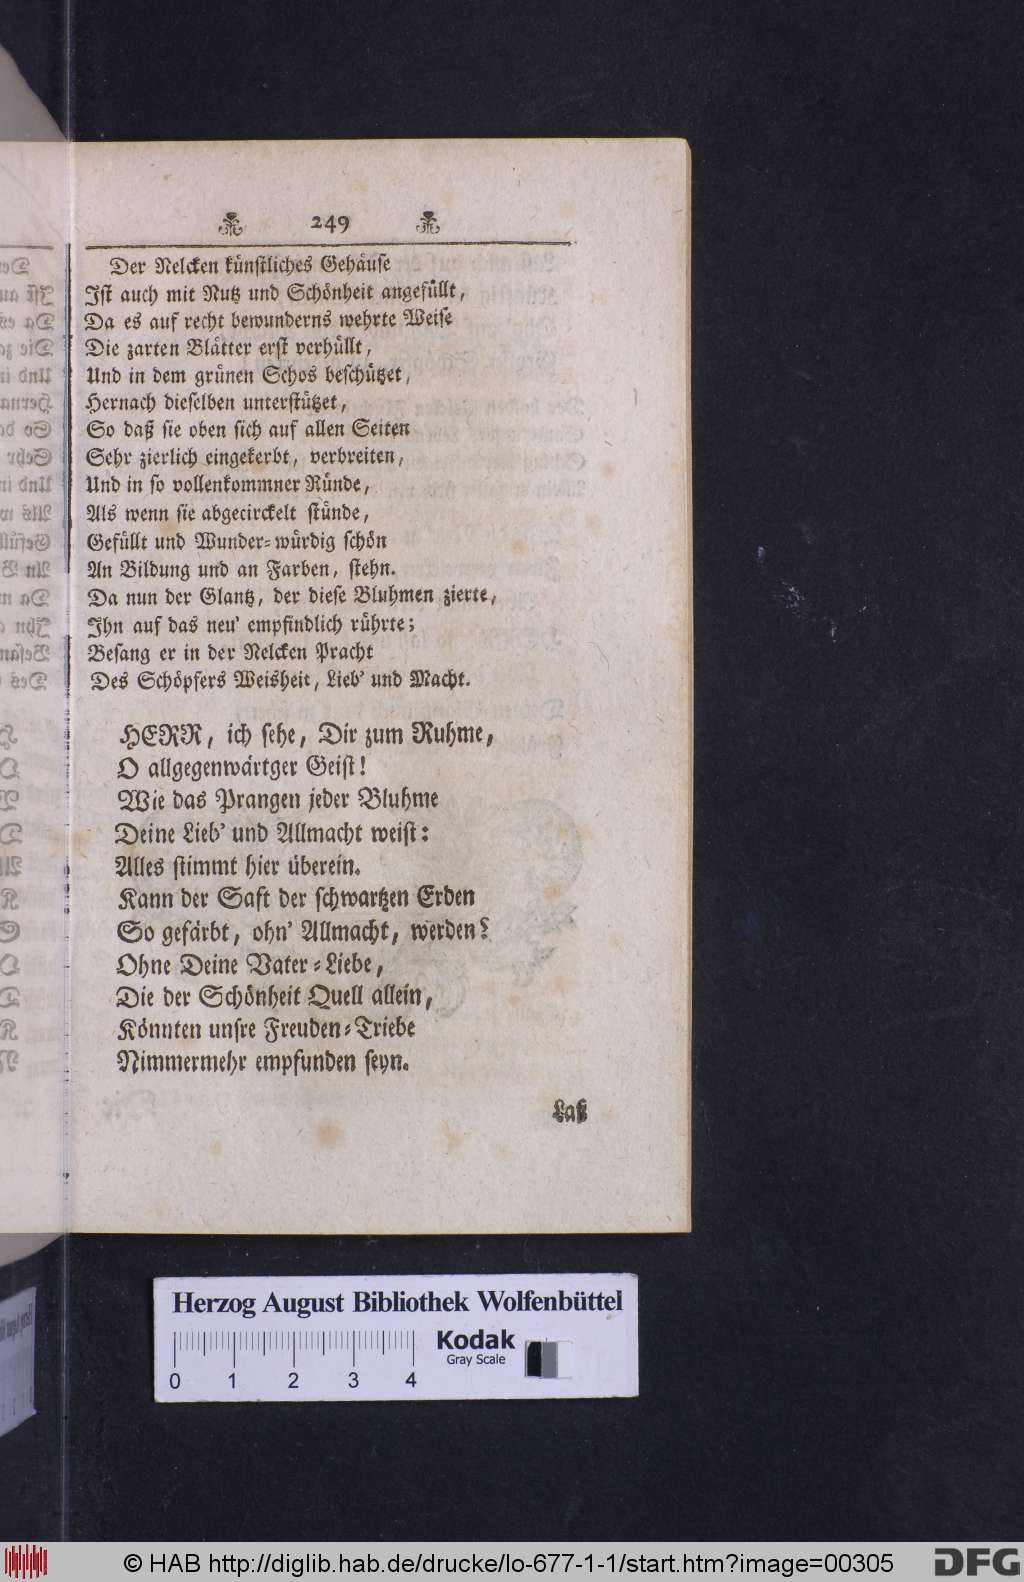 249
Der Nelcken künstliches Gehäuse
Ist auch mit Nutz und Schönheit angefüllt,
Da es auf recht bewunderns wehrte Weise
Die zarten Blätter erst verhüllt,
Und in dem grünen Schos beschützet,
Hernach dieselben unterstützet,
So daß sie oben sich auf allen Seiten
Sehr zierlich eingekerbt, verbreiten,
Und in so vollenkommner Ründe,
Als wenn sie abgecirckelt stünde,
Gefüllt und Wunder-würdig schön
An Bildung und an Farben, stehn.
Da nun der Glantz, der diese Bluhmen zierte,
Ihn auf das neu' empfindlich rührte;
Besang er in der Nelcken Pracht
Des Schöpfers Weisheit, Lieb' und Macht.
HERR, ich sehe, Dir zum Ruhme,
O allgegenwärtger Geist!
Wie das Prangen jeder Bluhme
Deine Lieb' und Allmacht weist:
Alles stimmt hier überein.
Kann der Saft der schwartzen Erden
So gefärbt, ohn' Allmacht, werden?
Ohne Deine Vater-Liebe,
Die der Schönheit Quell allein,
Könnten unsre Freuden-Triebe
Nimmermehr empfunden seyn.
Laß
Herzog August Bibliothek Wolfenbüttel
Kodak
Gray Scale
0 1 2 3 4
© HAB http://diglib.hab.de/drucke/lo-677-1-1/start.htm?image=00305
DFG